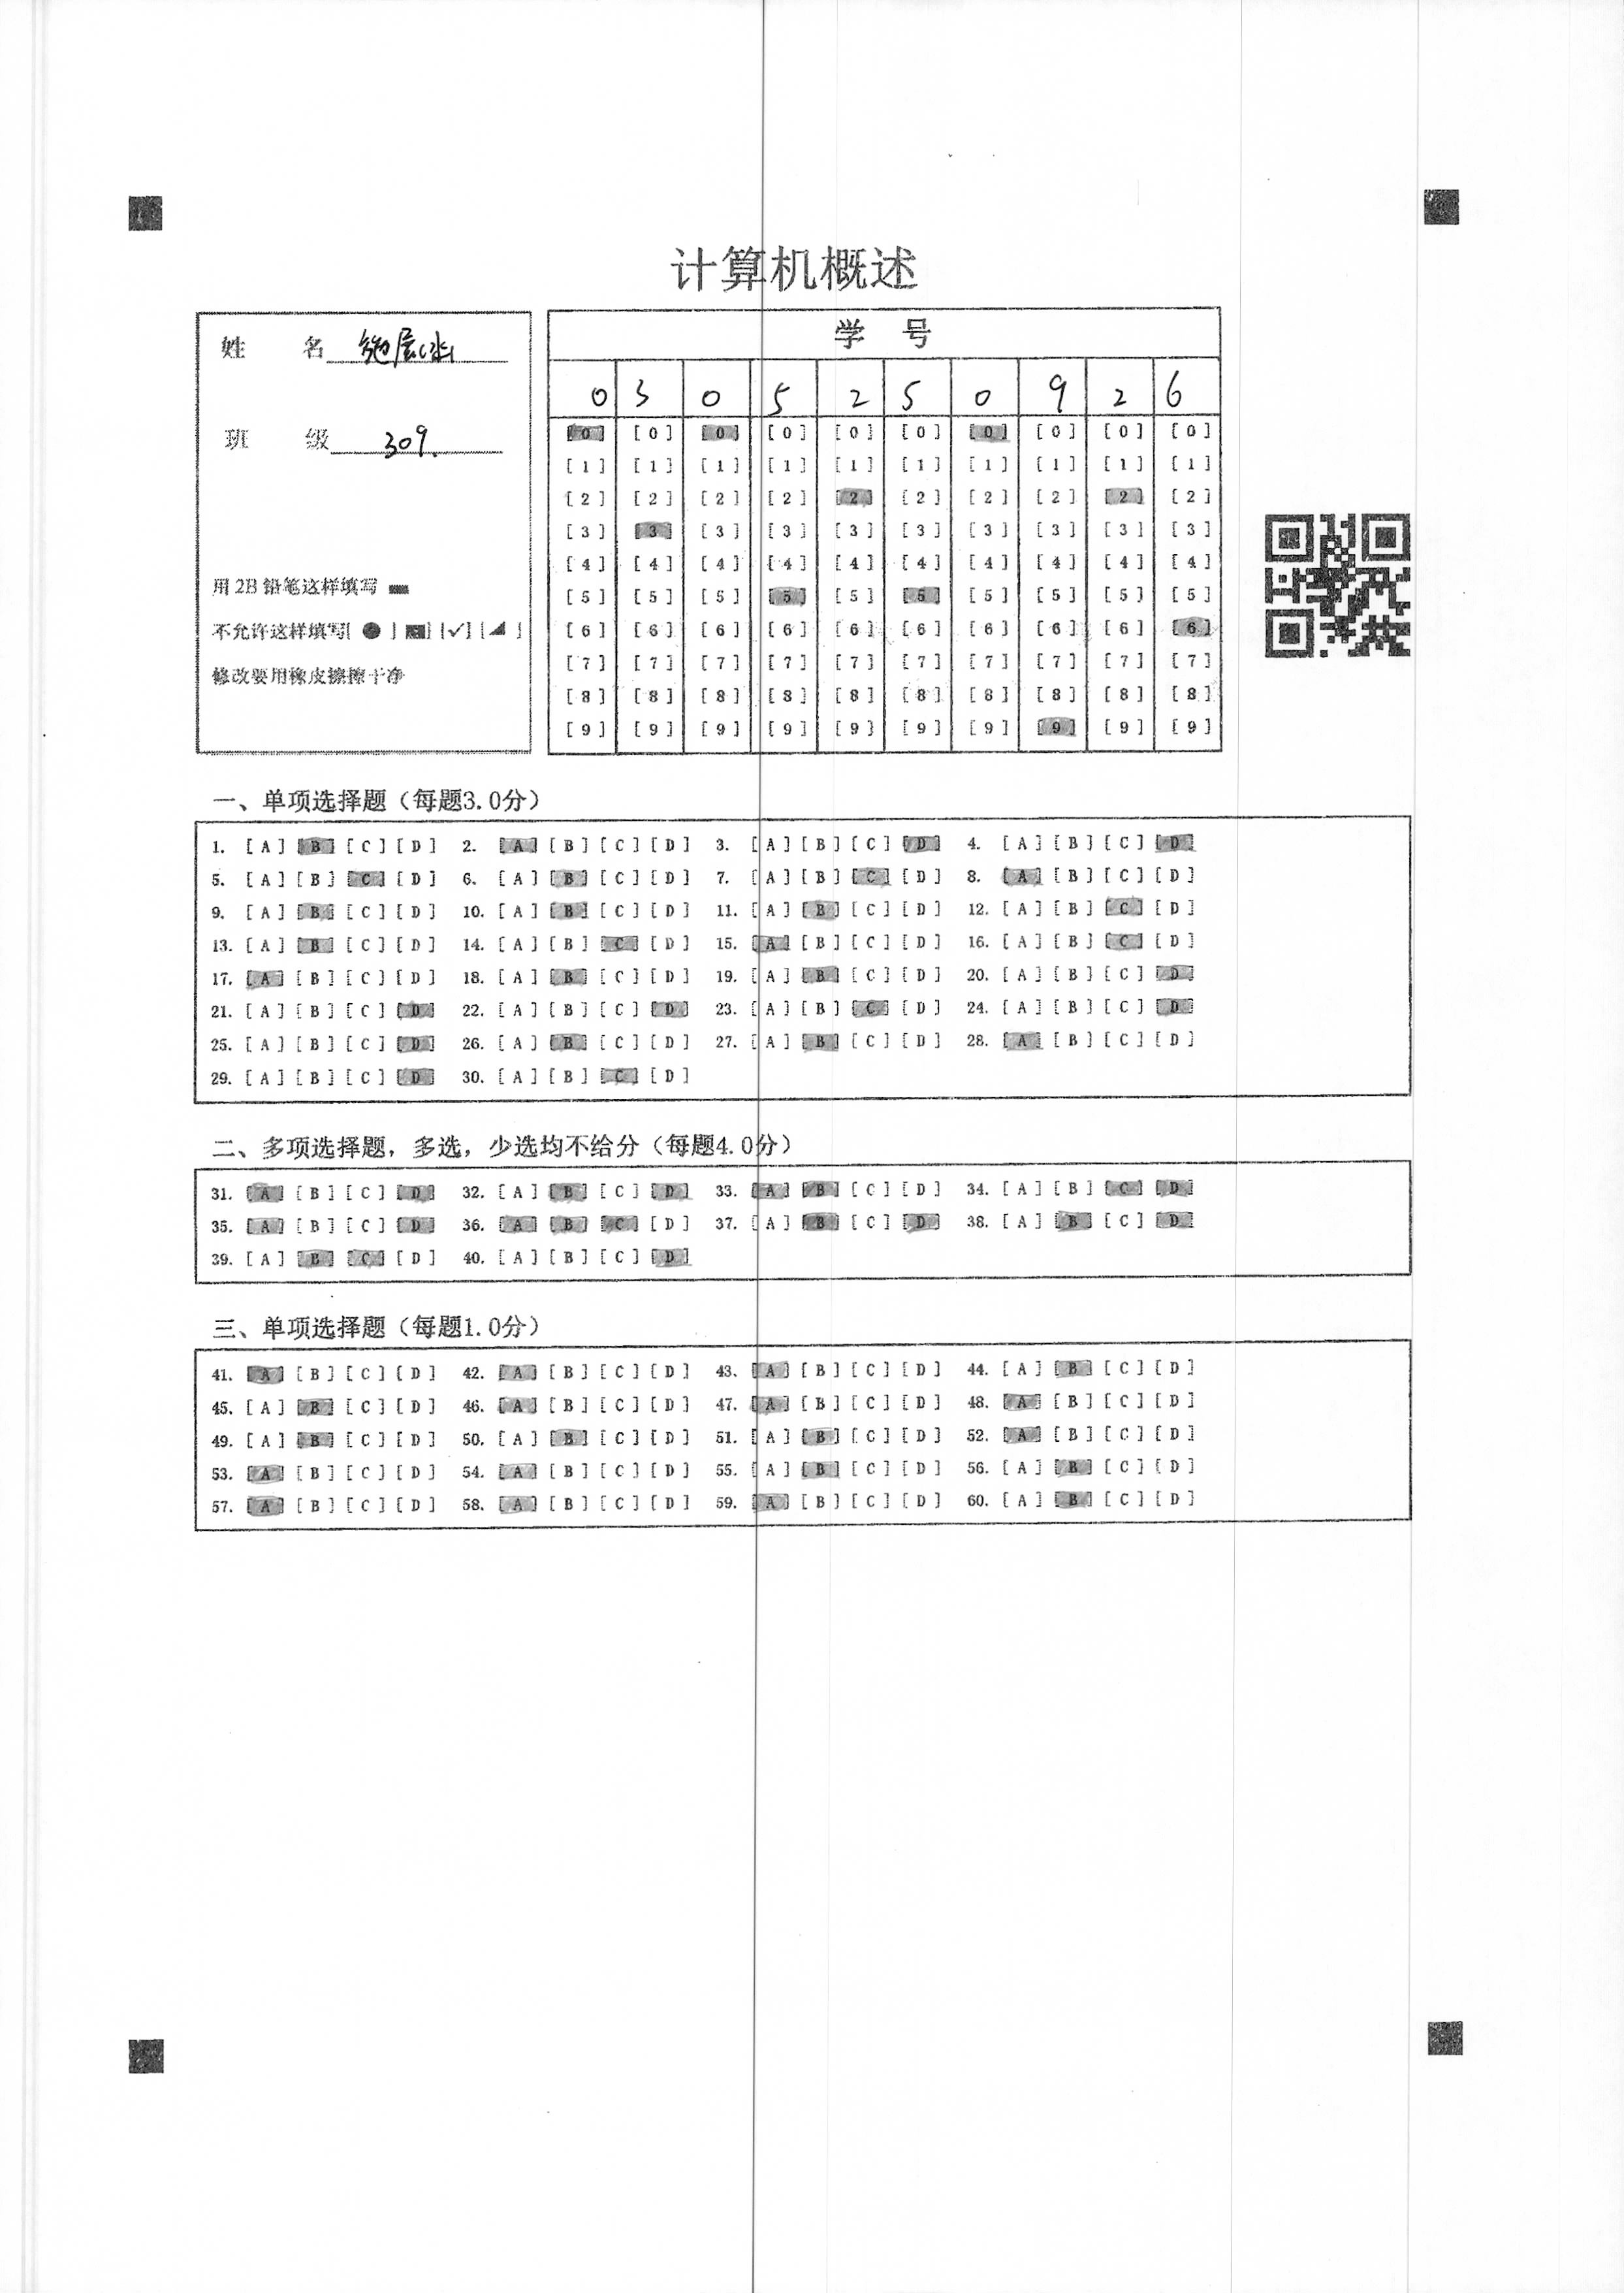 计算机概述
姓 名
班 级 309.
用2B铅笔这样填写
不允许这样填写[ ● ] [ ] [✓] [ ]
修改要用橡皮擦擦干净
学 号
0 3 0 5 2 5 0 9 2 6
[0] [0] [0] [0] [0] [0] [0] [0] [0] [0]
[1] [1] [1] [1] [1] [1] [1] [1] [1] [1]
[2] [2] [2] [2] [2] [2] [2] [2] [2] [2]
[3] [3] [3] [3] [3] [3] [3] [3] [3] [3]
[4] [4] [4] [4] [4] [4] [4] [4] [4] [4]
[5] [5] [5] [5] [5] [5] [5] [5] [5] [5]
[6] [6] [6] [6] [6] [6] [6] [6] [6] [6]
[7] [7] [7] [7] [7] [7] [7] [7] [7] [7]
[8] [8] [8] [8] [8] [8] [8] [8] [8] [8]
[9] [9] [9] [9] [9] [9] [9] [9] [9] [9]
一、单项选择题（每题3.0分）
1. [A] [B] [C] [D] 2. [A] [B] [C] [D] 3. [A] [B] [C] [D] 4. [A] [B] [C] [D]
5. [A] [B] [C] [D] 6. [A] [B] [C] [D] 7. [A] [B] [C] [D] 8. [A] [B] [C] [D]
9. [A] [B] [C] [D] 10. [A] [B] [C] [D] 11. [A] [B] [C] [D] 12. [A] [B] [C] [D]
13. [A] [B] [C] [D] 14. [A] [B] [C] [D] 15. [A] [B] [C] [D] 16. [A] [B] [C] [D]
17. [A] [B] [C] [D] 18. [A] [B] [C] [D] 19. [A] [B] [C] [D] 20. [A] [B] [C] [D]
21. [A] [B] [C] [D] 22. [A] [B] [C] [D] 23. [A] [B] [C] [D] 24. [A] [B] [C] [D]
25. [A] [B] [C] [D] 26. [A] [B] [C] [D] 27. [A] [B] [C] [D] 28. [A] [B] [C] [D]
29. [A] [B] [C] [D] 30. [A] [B] [C] [D]
二、多项选择题，多选，少选均不给分（每题4.0分）
31. [A] [B] [C] [D] 32. [A] [B] [C] [D] 33. [A] [B] [C] [D] 34. [A] [B] [C] [D]
35. [A] [B] [C] [D] 36. [A] [B] [C] [D] 37. [A] [B] [C] [D] 38. [A] [B] [C] [D]
39. [A] [B] [C] [D] 40. [A] [B] [C] [D]
三、单项选择题（每题1.0分）
41. [A] [B] [C] [D] 42. [A] [B] [C] [D] 43. [A] [B] [C] [D] 44. [A] [B] [C] [D]
45. [A] [B] [C] [D] 46. [A] [B] [C] [D] 47. [A] [B] [C] [D] 48. [A] [B] [C] [D]
49. [A] [B] [C] [D] 50. [A] [B] [C] [D] 51. [A] [B] [C] [D] 52. [A] [B] [C] [D]
53. [A] [B] [C] [D] 54. [A] [B] [C] [D] 55. [A] [B] [C] [D] 56. [A] [B] [C] [D]
57. [A] [B] [C] [D] 58. [A] [B] [C] [D] 59. [A] [B] [C] [D] 60. [A] [B] [C] [D]